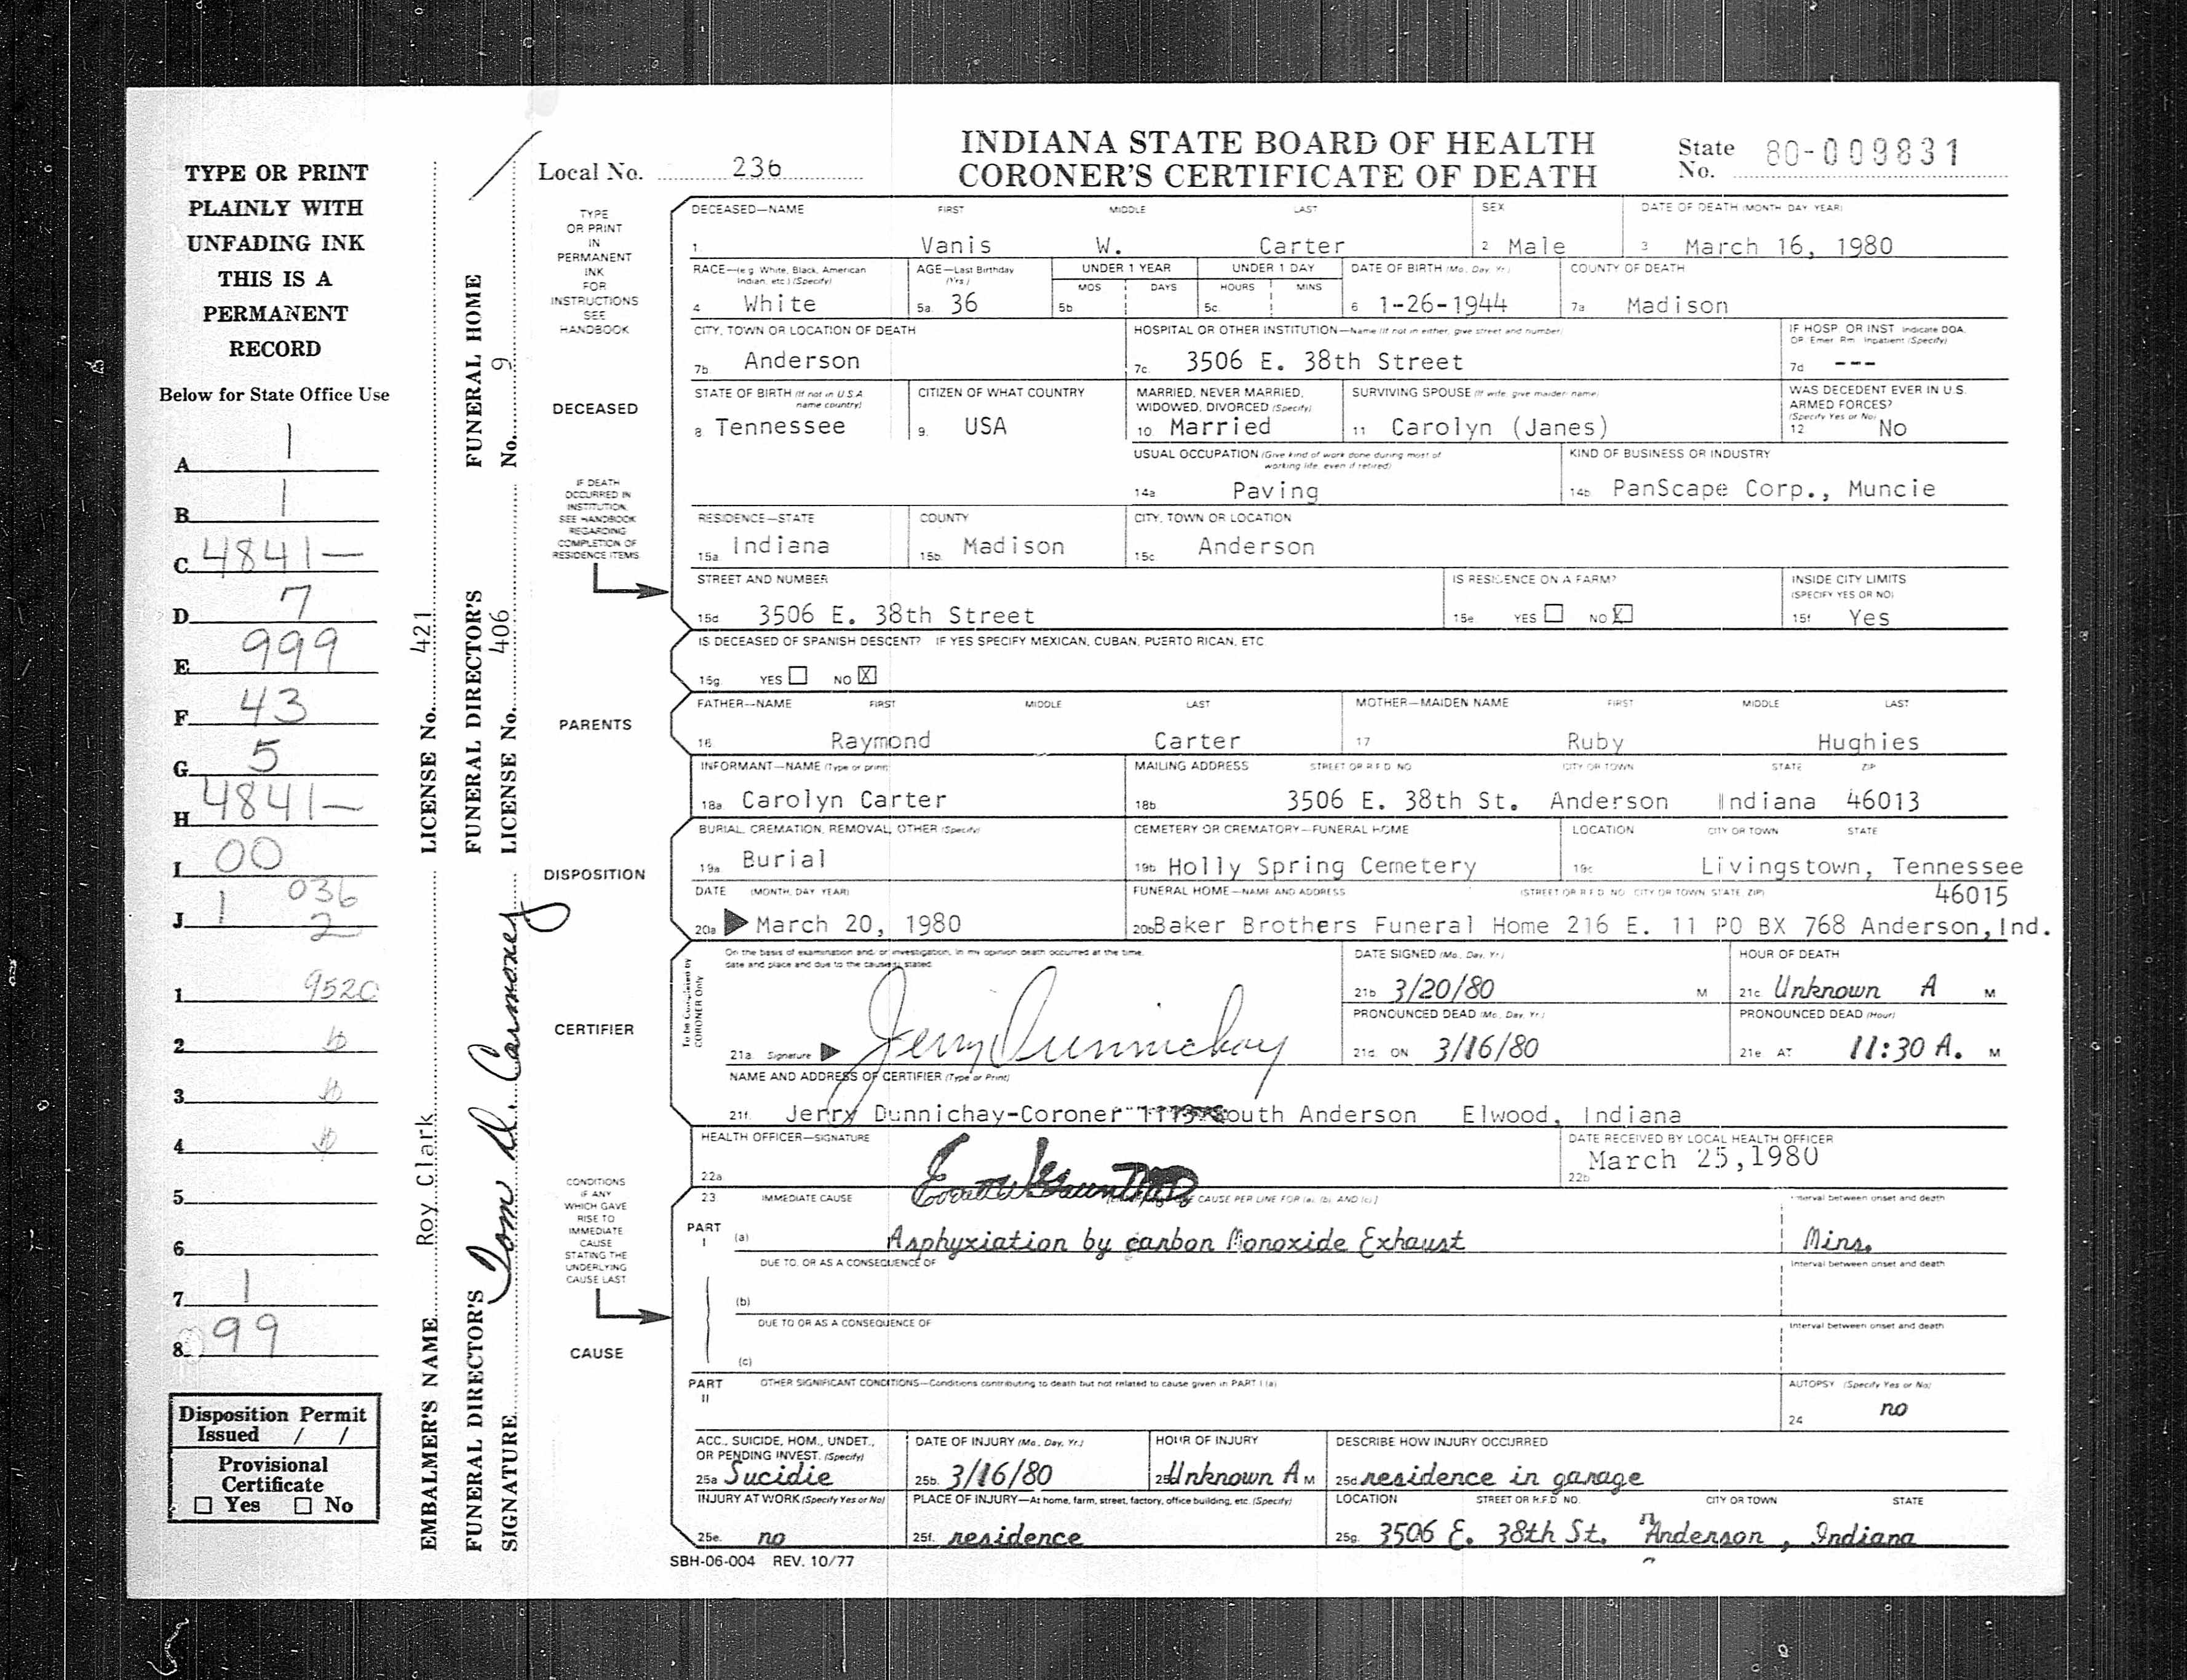 TYPE OR PRINT
PLAINLY WITH
UNFADING INK
THIS IS A
PERMANENT
RECORD
Below for State Office Use
A 1
B 1
C 4841—
D 7
E 999
F 43
G 5
H 4841—
I 00
J 1 036
2
1 9520
2
3
4
5
6
7 1
8 99
Disposition Permit
Issued / /
Provisional
Certificate
☐ Yes ☐ No
EMBALMER'S NAME Roy Clark LICENSE No. 421
FUNERAL DIRECTOR'S FUNERAL DIRECTOR'S FUNERAL HOME
SIGNATURE LICENSE No. 406 No. 9
Local No. 236
INDIANA STATE BOARD OF HEALTH
CORONER'S CERTIFICATE OF DEATH
State No. 80-009831
TYPE
OR PRINT
IN
PERMANENT
INK
FOR
INSTRUCTIONS
SEE
HANDBOOK
DECEASED
IF DEATH
OCCURRED IN
INSTITUTION,
SEE HANDBOOK
REGARDING
COMPLETION OF
RESIDENCE ITEMS
DECEASED—NAME FIRST MIDDLE LAST SEX DATE OF DEATH (MONTH DAY YEAR)
1. Vanis W. Carter 2 Male 3 March 16, 1980
RACE—(e.g. White, Black, American Indian, etc.) (Specify) AGE—Last Birthday (Yrs.) UNDER 1 YEAR UNDER 1 DAY DATE OF BIRTH (Mo., Day, Yr.) COUNTY OF DEATH
MOS DAYS HOURS MINS
4 White 5a. 36 5b 5c. 6 1-26-1944 7a Madison
CITY, TOWN OR LOCATION OF DEATH HOSPITAL OR OTHER INSTITUTION—Name (If not in either, give street and number) IF HOSP. OR INST. Indicate DOA, OP Emer. Rm., Inpatient (Specify)
7b Anderson 7c. 3506 E. 38th Street 7d ---
STATE OF BIRTH (If not in U.S.A. name country) CITIZEN OF WHAT COUNTRY MARRIED, NEVER MARRIED, WIDOWED, DIVORCED (Specify) SURVIVING SPOUSE (If wife, give maiden name) WAS DECEDENT EVER IN U.S. ARMED FORCES? (Specify Yes or No)
8 Tennessee 9. USA 10 Married 11 Carolyn (Janes) 12 No
USUAL OCCUPATION (Give kind of work done during most of working life, even if retired) KIND OF BUSINESS OR INDUSTRY
14a Paving 14b PanScape Corp., Muncie
RESIDENCE—STATE COUNTY CITY, TOWN OR LOCATION
15a Indiana 15b. Madison 15c Anderson
STREET AND NUMBER IS RESIDENCE ON A FARM? INSIDE CITY LIMITS (SPECIFY YES OR NO)
15d 3506 E. 38th Street 15e YES ☐ NO ☒ 15f Yes
IS DECEASED OF SPANISH DESCENT? IF YES SPECIFY MEXICAN, CUBAN, PUERTO RICAN, ETC
15g. YES ☐ NO ☒
PARENTS
FATHER—NAME FIRST MIDDLE LAST MOTHER—MAIDEN NAME FIRST MIDDLE LAST
16 Raymond Carter 17 Ruby Hughies
INFORMANT—NAME (Type or print) MAILING ADDRESS STREET OR R.F.D. NO CITY OR TOWN STATE ZIP
18a Carolyn Carter 18b 3506 E. 38th St. Anderson Indiana 46013
DISPOSITION
BURIAL, CREMATION, REMOVAL, OTHER (Specify) CEMETERY OR CREMATORY—FUNERAL HOME LOCATION CITY OR TOWN STATE
19a Burial 19b Holly Spring Cemetery 19c Livingstown, Tennessee
DATE (MONTH, DAY, YEAR) FUNERAL HOME—NAME AND ADDRESS (STREET OR R.F.D. NO. CITY OR TOWN STATE ZIP)
46015
20a March 20, 1980 20b Baker Brothers Funeral Home 216 E. 11 PO BX 768 Anderson, Ind.
CERTIFIER
To be Completed by CORONER Only
On the basis of examination and/or investigation, in my opinion death occurred at the time, date and place and due to the cause(s) stated.
DATE SIGNED (Mo., Day, Yr.) HOUR OF DEATH
21b 3/20/80 M 21c Unknown A M
PRONOUNCED DEAD (Mo., Day, Yr.) PRONOUNCED DEAD (Hour)
21a. Signature Jerry Dunnichay 21d ON 3/16/80 21e AT 11:30 A. M
NAME AND ADDRESS OF CERTIFIER (Type or Print)
21f. Jerry Dunnichay-Coroner South Anderson Elwood, Indiana
HEALTH OFFICER—SIGNATURE DATE RECEIVED BY LOCAL HEALTH OFFICER
22a 22b March 25,1980
CONDITIONS
IF ANY
WHICH GAVE
RISE TO
IMMEDIATE
CAUSE
STATING THE
UNDERLYING
CAUSE LAST
CAUSE
23. IMMEDIATE CAUSE CAUSE PER LINE FOR (a), (b), AND (c)] Interval between onset and death
PART I (a) Asphyxiation by carbon Monoxide Exhaust Mins.
DUE TO, OR AS A CONSEQUENCE OF Interval between onset and death
(b)
DUE TO OR AS A CONSEQUENCE OF Interval between onset and death
(c)
PART II OTHER SIGNIFICANT CONDITIONS—Conditions contributing to death but not related to cause given in PART I (a) AUTOPSY (Specify Yes or No)
24 no
ACC., SUICIDE, HOM., UNDET., OR PENDING INVEST. (Specify) DATE OF INJURY (Mo., Day, Yr.) HOUR OF INJURY DESCRIBE HOW INJURY OCCURRED
25a Sucidie 25b. 3/16/80 25c Unknown A M 25d residence in garage
INJURY AT WORK (Specify Yes or No) PLACE OF INJURY—At home, farm, street, factory, office building, etc. (Specify) LOCATION STREET OR R.F.D. NO. CITY OR TOWN STATE
25e. no 25f. residence 25g. 3506 E. 38th St. Anderson, Indiana
SBH-06-004 REV. 10/77